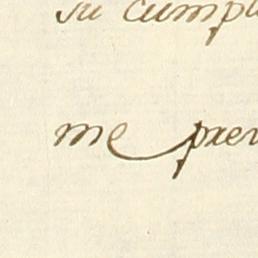 su cumpl
me prev